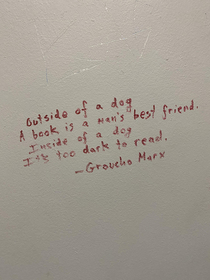 Outside of a dog
A book is a man's best friend.
Inside of a dog
It's too dark to read.
—Groucho Marx